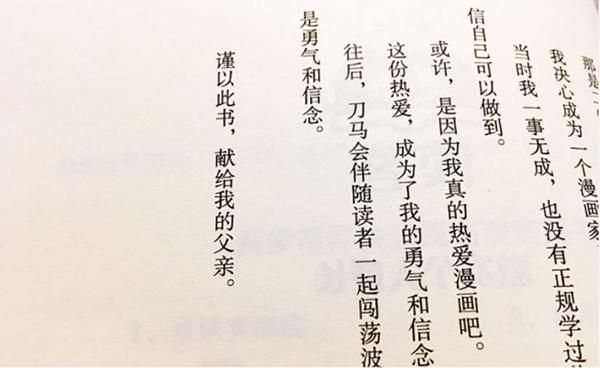 那是
我决心成为一个漫画家
当时我一事无成，也没有正规学过
信自己可以做到。
或许，是因为我真的热爱漫画吧。
这份热爱，成为了我的勇气和信念
往后，刀马会伴随读者一起闯荡波
是勇气和信念。
谨以此书，献给我的父亲。